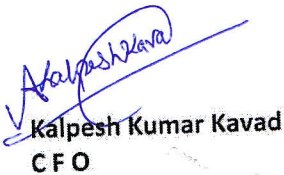 AKalpeshkava
Kalpesh Kumar Kavad
C F O